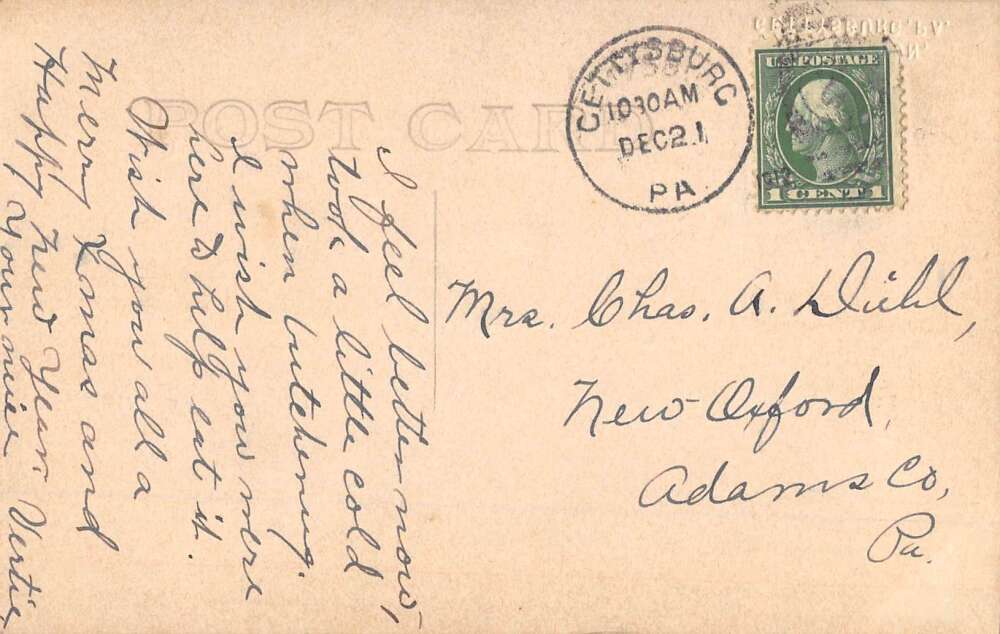 POST CARD
GETTYSBURG
1030AM
DEC21
PA.
U.S. POSTAGE
1 CENT 1
Mrs. Chas. A. Diehl,
New Oxford,
Adams Co,
Pa.
I feel better now,
took a little cold
when butchering.
I wish you were
here to help eat it.
Wish you all a
Merry Xmas and
Happy New Year.
Your niece Vertie